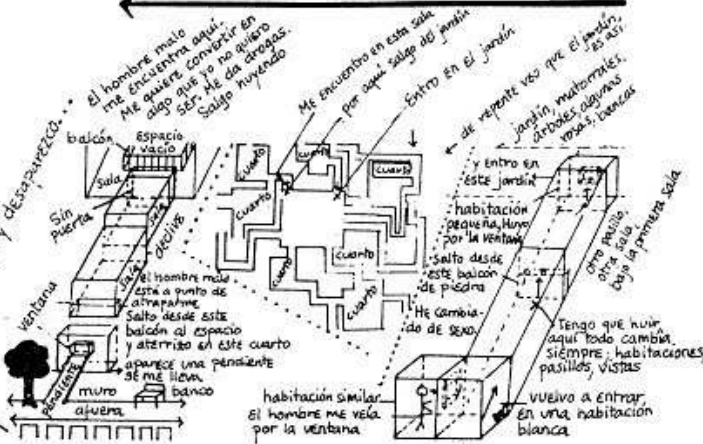 y desaparezco...
El hombre malo
me encuentra aquí.
Me quiere convertir en
algo que yo no quiero
ser. Me da drogas.
Salgo huyendo
balcón
espacio
vacío
Sala
Sin
puerta
sala
declive
sala
ventana
el hombre malo
está a punto de
atraparme
Salto desde este
balcón al espacio
y aterrizo en este cuarto
aparece una pendiente
se me lleva
pendiente
muro
banco
afuera
Me encuentro en esta sala
por aquí salgo del jardín
Entro en el jardín
cuarto
cuarto
cuarto
cuarto
cuarto
cuarto
cuarto
de repente veo que el jardín,
es así.
jardín, matorrales,
árboles algunas
rosas, bancas
y entro en
este jardín
habitación
pequeña, Huyo
por la ventana
Salto desde
este balcón
de piedra
He cambia-
do de sexo.
otro pasillo,
otra sala,
bajo la primera sala
Tengo que huir,
aquí todo cambia
siempre: habitaciones,
pasillos, vistas
vuelvo a entrar
en una habitación
blanca
habitación similar
el hombre me veía
por la ventana